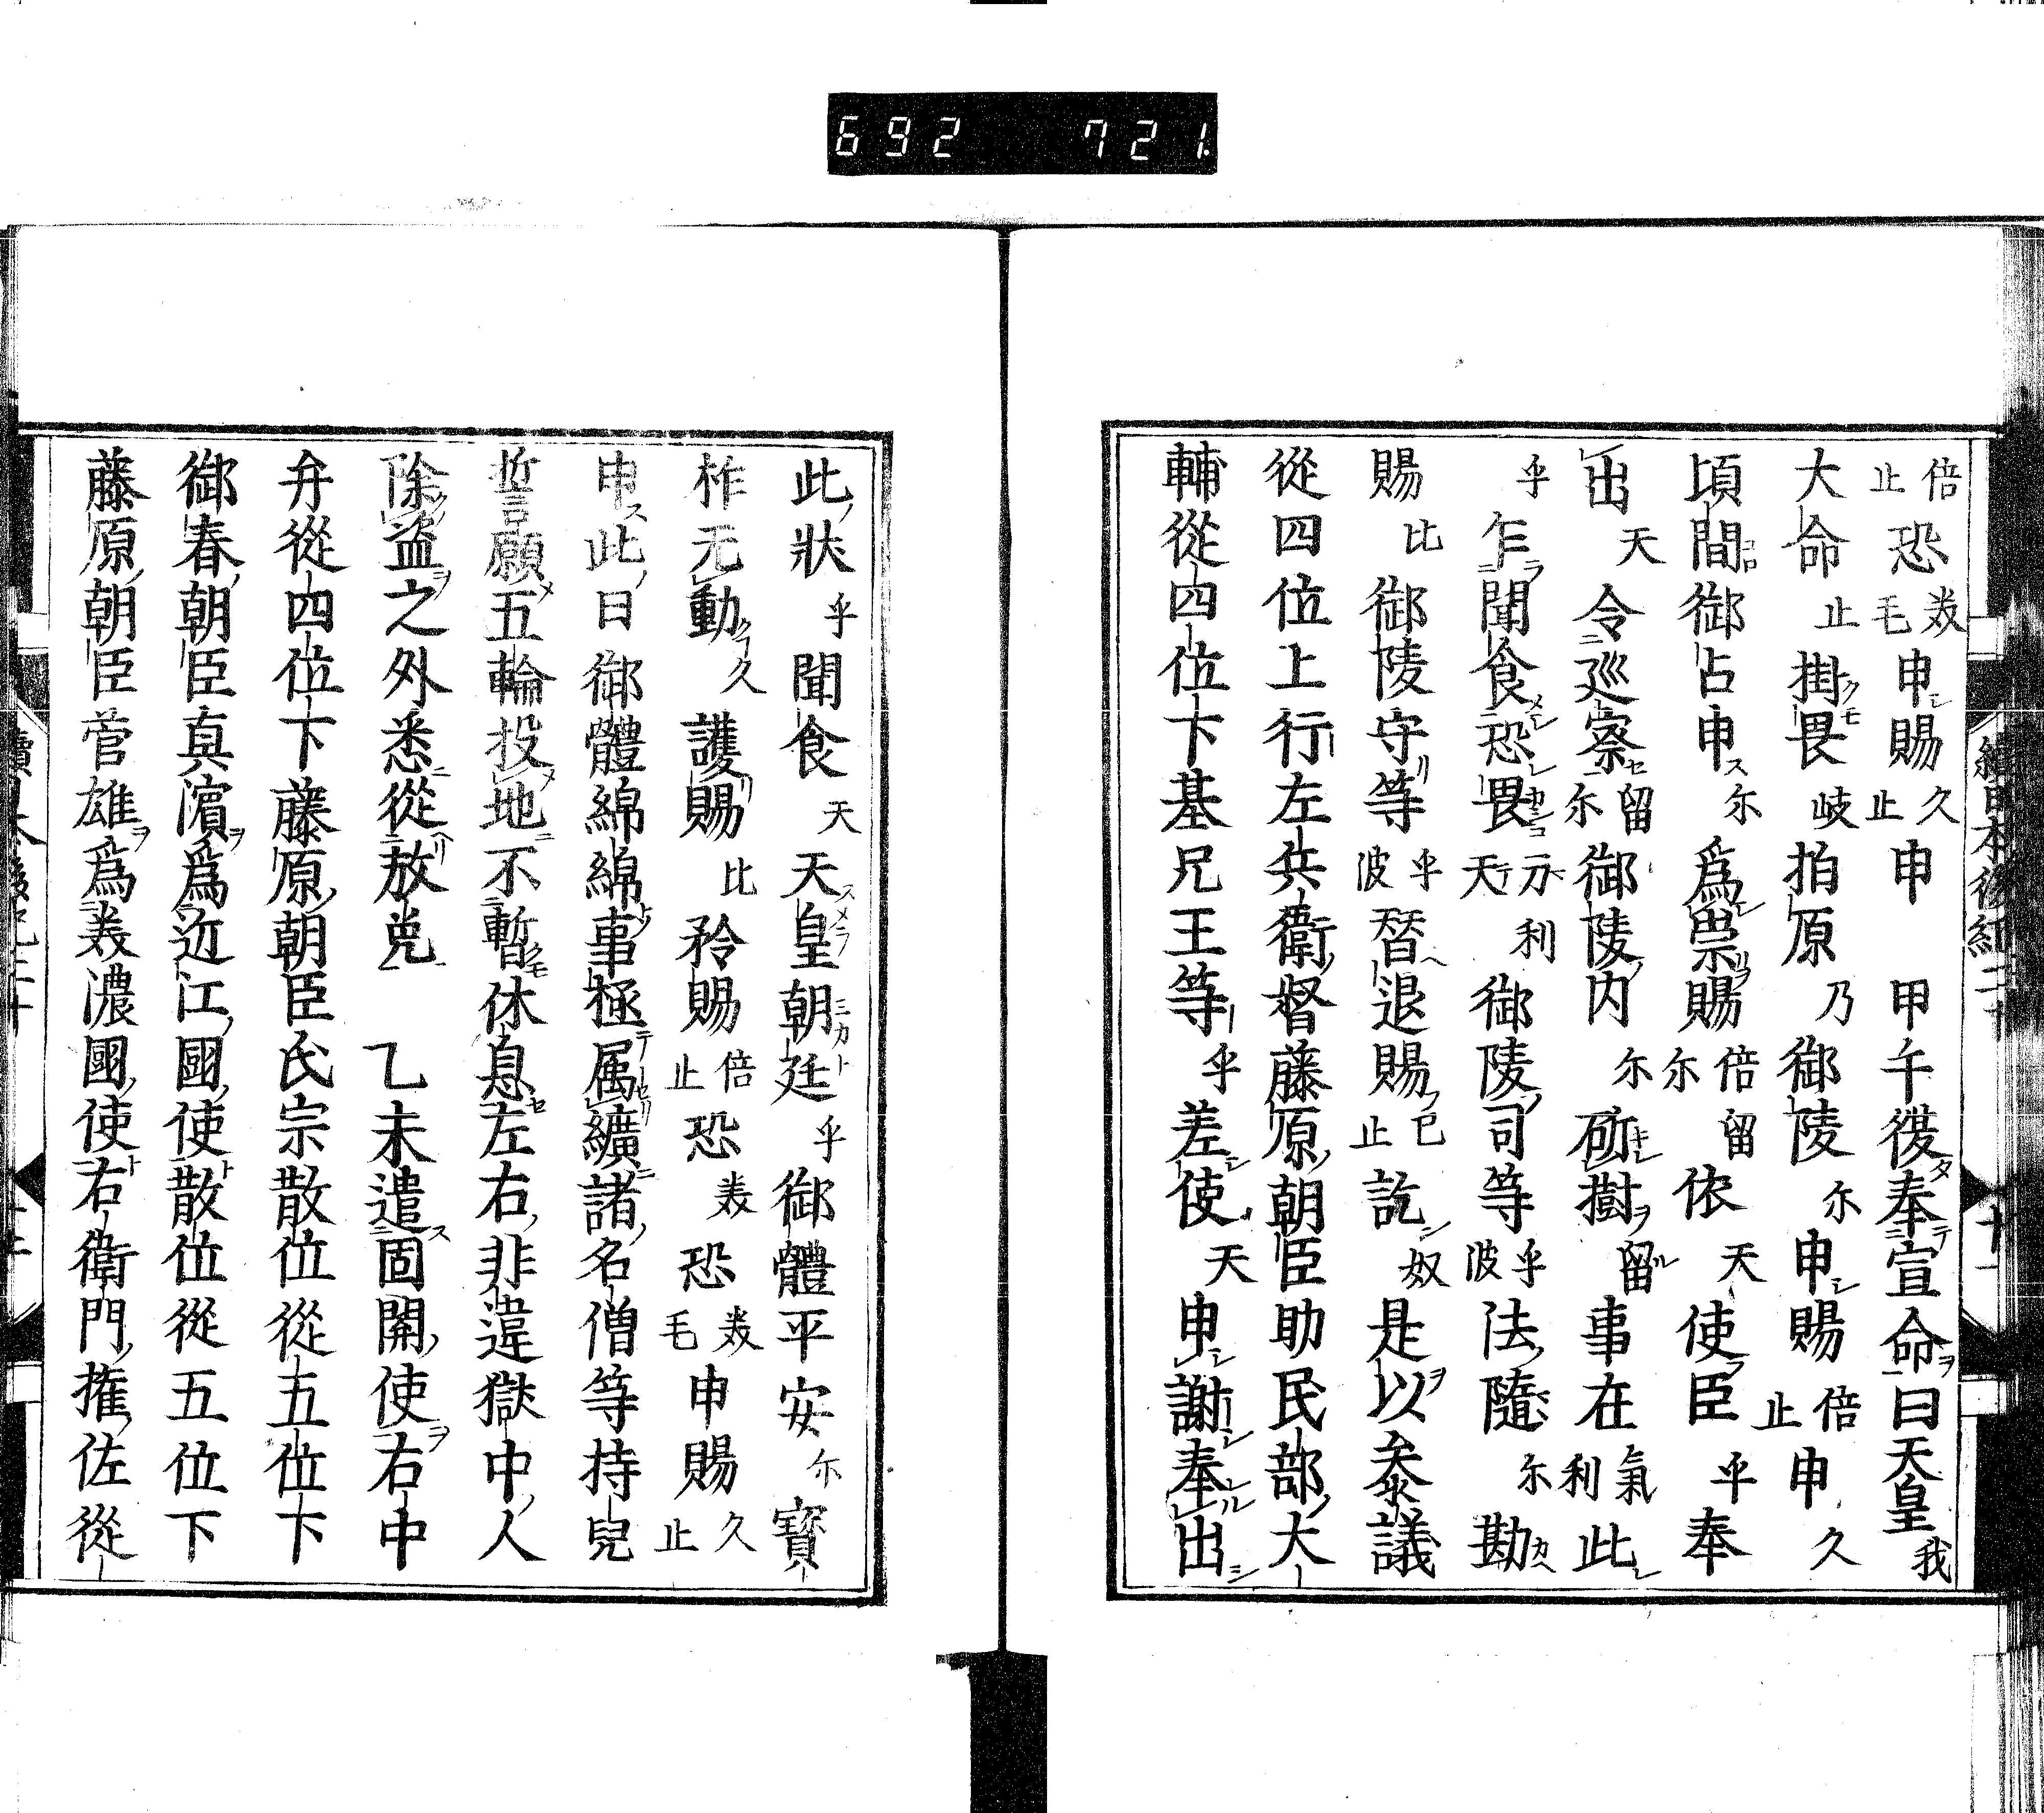 692 721
倍止恐美毛申賜久止申 甲午復奉宣命曰天皇我
大命止掛畏岐柏原乃御陵尓申賜倍止申久
頃間御占申尓爲祟賜倍留尓依天使臣乎奉
出天令巡察尓留御陵内尓斫樹留事在氣利此
乎乍聞食恐畏天利御陵司等乎波法隨尓勘
賜比御陵守等乎波替退賜已止訖奴是以叅議
從四位上行左兵衛督藤原朝臣助民部大
輔從四位下基兄王等乎差使天申謝奉出
此狀乎聞食天天皇朝廷乎御體平安尓寶
祚无動久護賜比矜賜倍止恐美恐美毛申賜久止
申此日御體綿綿事極属纊諸名僧等持咒
誓願五輪投地不暫休息左右非違獄中人
除盗之外悉從放免 乙未遣固關使右中
弁從四位下藤原朝臣氏宗散位從五位下
御春朝臣真濵爲近江國使散位從五位下
藤原朝臣菅雄爲美濃國使右衛門權佐從